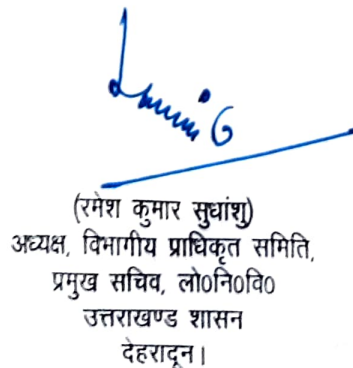 (रमेश कुमार सुधांशु)
अध्यक्ष, विभागीय प्राधिकृत समिति,
प्रमुख सचिव, लो०नि०वि०
उत्तराखण्ड शासन
देहरादून।